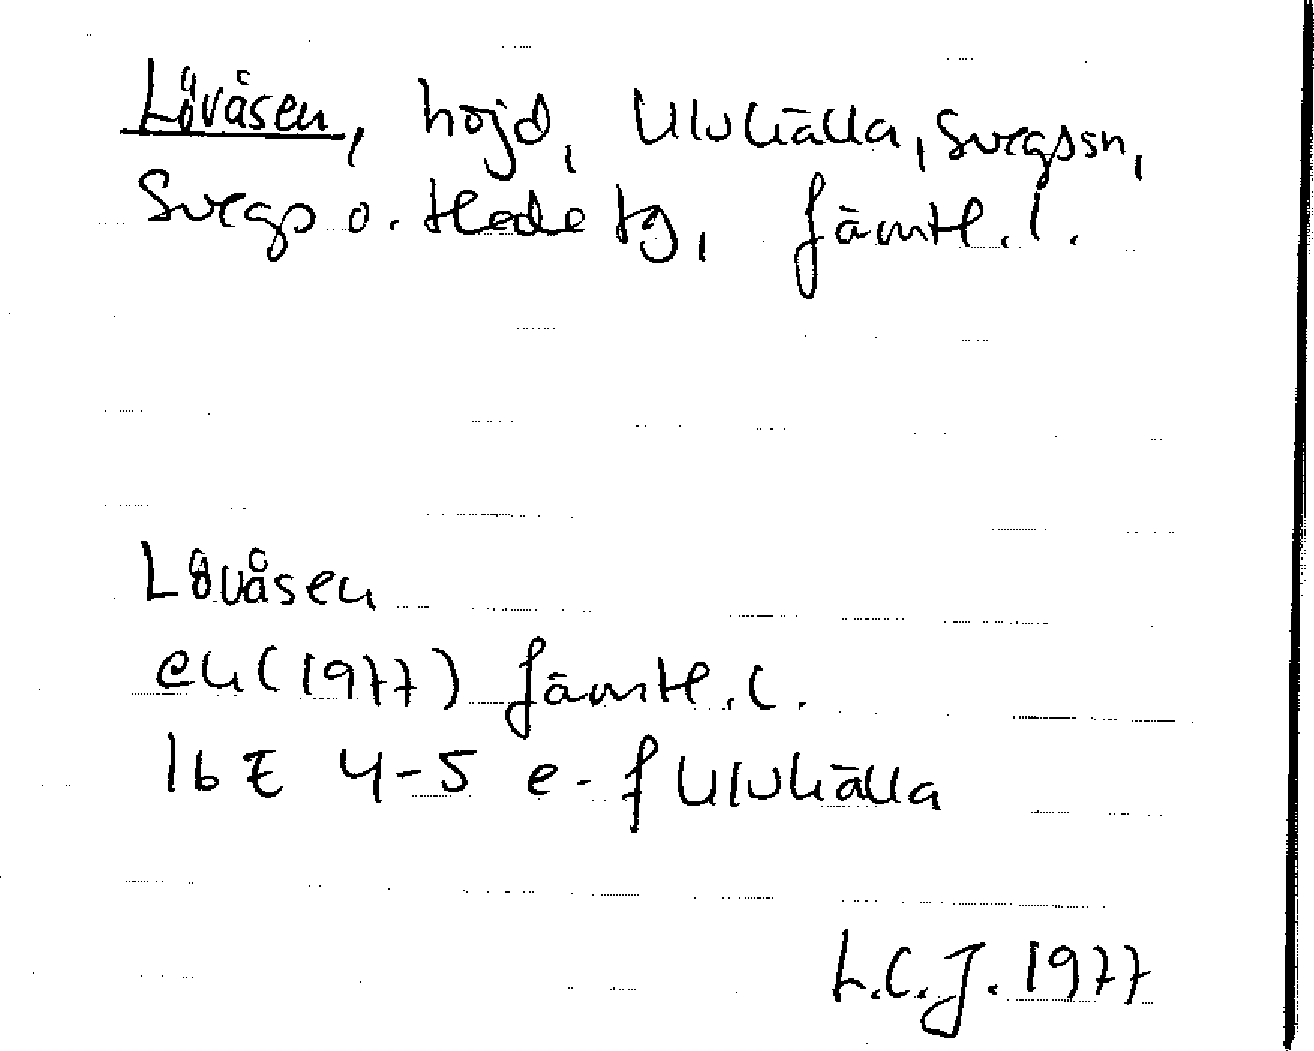 Lövåsen, höjd, Ulvkälla, Svegs sn,
Svegs o. Hede tg, Jämtl. l.
Lövåsen
ek (1977) Jämtl. l.
16 E 4-5 e-f Ulvkälla
L.C.J. 1977